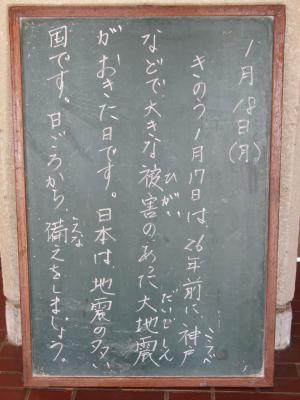 1月18日(月)
きのう1月17日は、26年前に、神戸
などで大きな被害のあった大地震
がおきた日です。日本は、地震の多い
国です。日ごろから、備えをしましょう。
こうべ
ひがい
だいじしん
そな